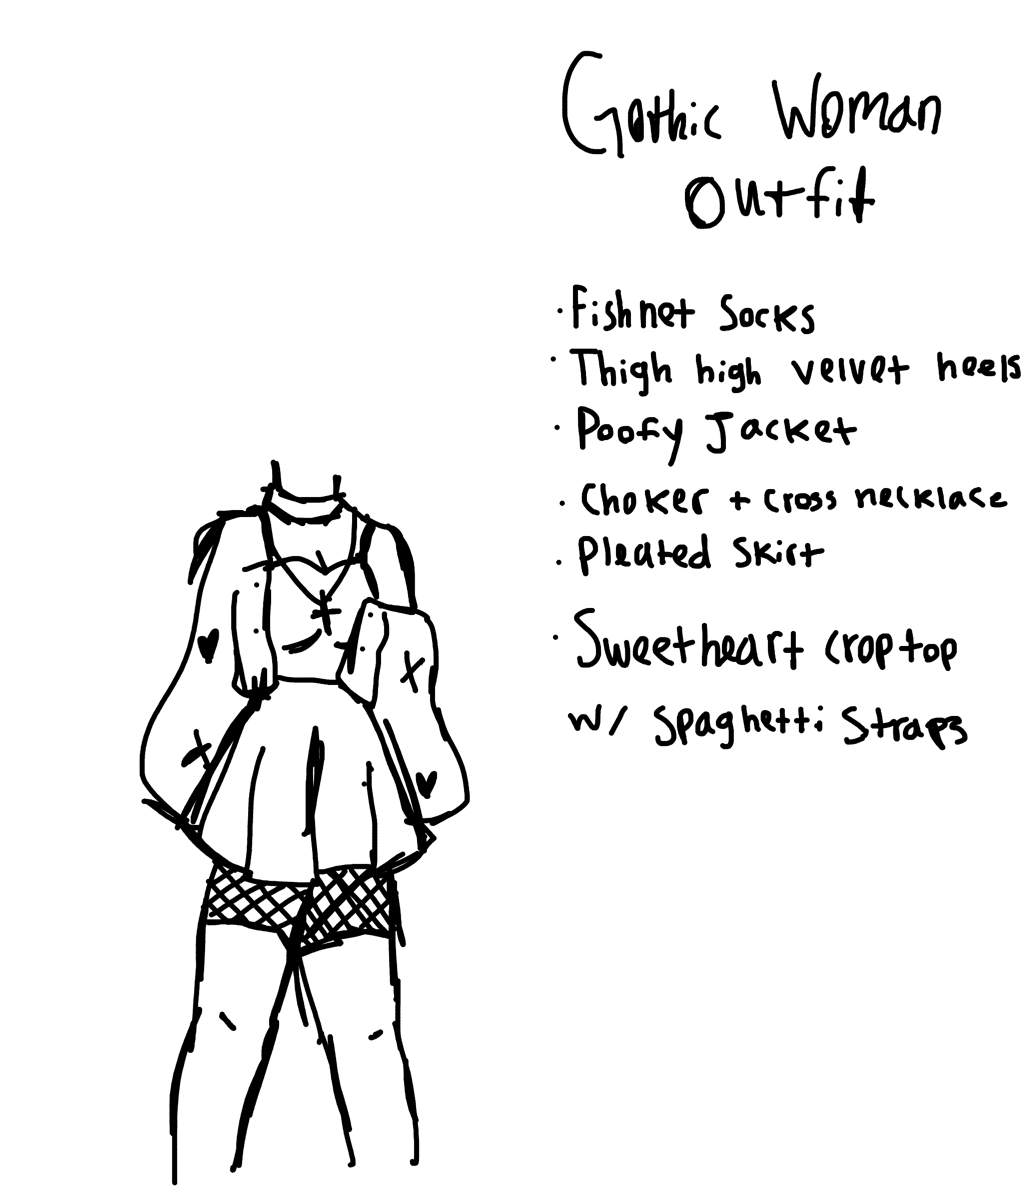 Gothic Woman
Outfit
· Fishnet Socks
· Thigh high velvet heels
· Poofy Jacket
· Choker + cross necklace
· Pleated Skirt
· Sweetheart croptop
w/ Spaghetti Straps